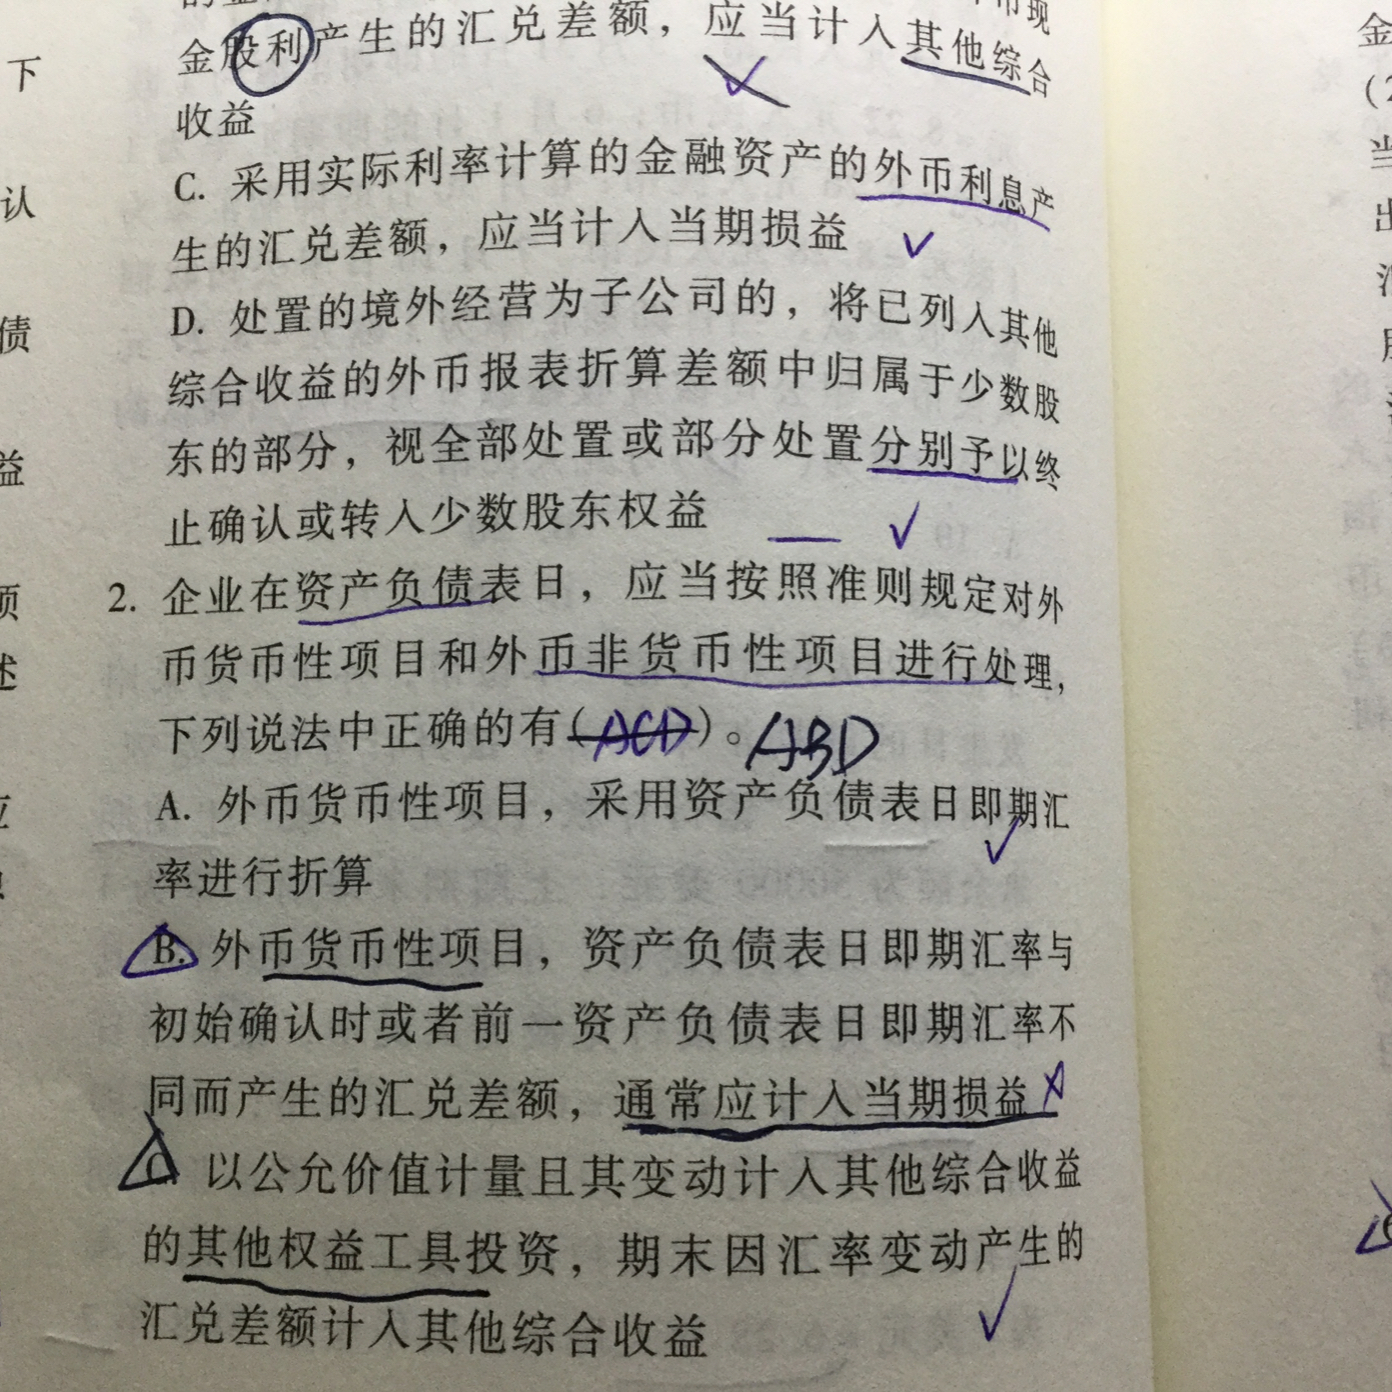 金股利产生的汇兑差额，应当计入其他综合
收益
C. 采用实际利率计算的金融资产的外币利息产
生的汇兑差额，应当计入当期损益
D. 处置的境外经营为子公司的，将已列入其他
综合收益的外币报表折算差额中归属于少数股
东的部分，视全部处置或部分处置分别予以终
止确认或转入少数股东权益
2. 企业在资产负债表日，应当按照准则规定对外
币货币性项目和外币非货币性项目进行处理，
下列说法中正确的有(ACD)。ABD
A. 外币货币性项目，采用资产负债表日即期汇
率进行折算
B. 外币货币性项目，资产负债表日即期汇率与
初始确认时或者前一资产负债表日即期汇率不
同而产生的汇兑差额，通常应计入当期损益
C. 以公允价值计量且其变动计入其他综合收益
的其他权益工具投资，期末因汇率变动产生的
汇兑差额计入其他综合收益
下
认
债
益
项
述
应
金
(2
当
出